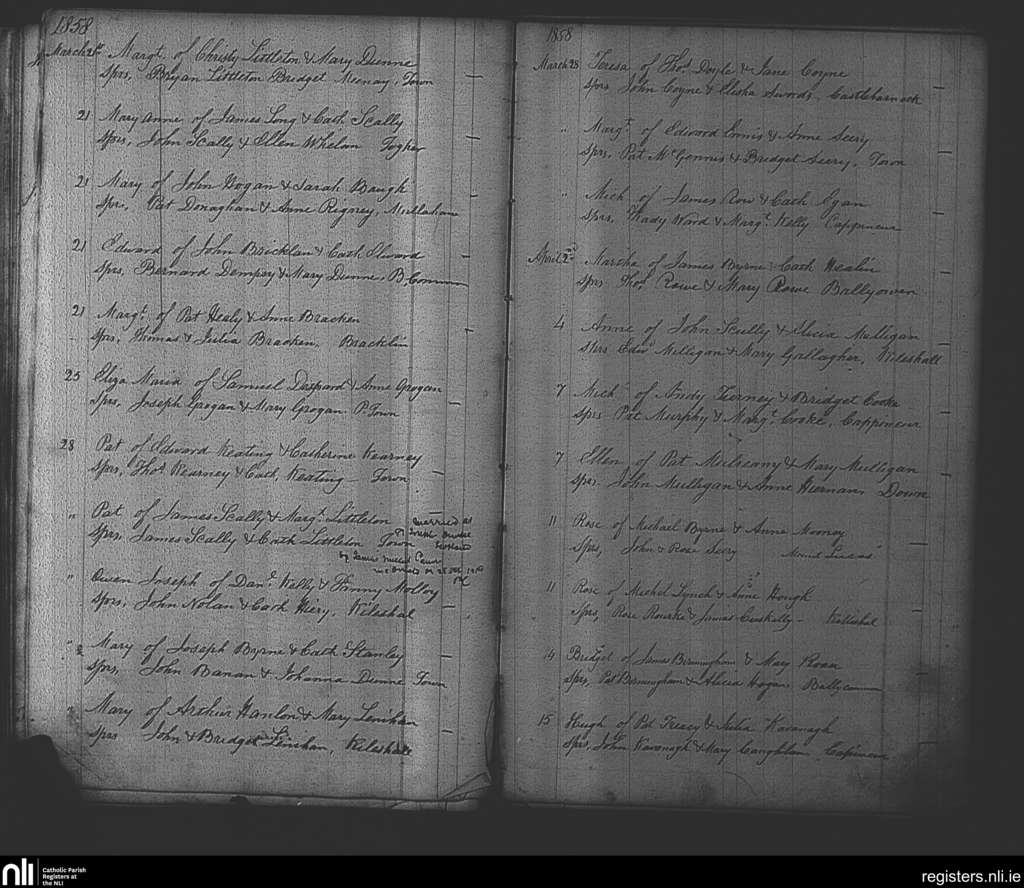 1858
March 21st Margt. of Christy Littleton & Mary Dunne
Sprs, Bryan Littleton Bridget Meenay, Town
21 Mary Anne of James Long & Cath Scally
Sprs, John Scally & Ellen Whelan Togher
21 Mary of John Hogan & Sarah Baugh
Sprs, Pat Donaghan & Anne Regney,
21 Edward of John & Cath
Sprs, Bernard Dempsy & Mary Dunne, B. Common
21 Margt. of Pat Healy & Anne Bracken
Sprs, Thomas & Julia Bracken, Bracklin
25 Eliza Maria of Samuel Despard & Anne Grogan
Sprs, Joseph Grogan & Mary Grogan P. Town
28 Pat of Edward Keating & Catherine Kearney
Sprs, Thos. Kearney & Cath. Keating - Town
" Pat of James Scally & Margt. Littleton married at
Sprs, James Scally & Cath Littleton Town
Scotland
by James
" Owen Joseph of Danl. Kelly & Fanny Molloy
Sprs, John Nolan & Cath Kiery, Kileshal
" Mary of Joseph Byrne & Cath Stanley
Sprs, John Banan & Johanna Dunne Town
Mary of Arthur Hanlon & Mary Linihan
Sprs John & Bridget Linihan, Kileshal
1858
March 28 Teresa of Thos. Doyle & Jane Coyne
Sprs John Coyne & Elisha Swords, Castlebarnock
" Margt. of Edward Ennis & Anne Seery
Sprs, Pat McGennis & Bridget Seery, Town
" Mich of James Row & Cath Egan
Sprs, Ward & Margt. Kelly Cappineur
April 2nd Martha of James Byrne & Cath Healin
Sprs Thos. Rowe & Mary Rowe Ballyowen
4 Anne of John Scully & Alicia Mulligan
Sprs Edwd Mulligan & Mary Gallagher, Kileshall
7 Mich of Andy Tierney & Bridget Cooke
Sprs Pat Murphy & Margt. Cooke, Cappineur
7 Ellen of Pat & Mary Mulligan
Sprs. John Mulligan & Anne Kiernan Down
11 Rose of Michael Byrne & Anne Mooney
Sprs, John & Rose Seery Mount Lucas
11 Rose of Michel Lynch & Anne Hough
Sprs, Rose Rourke & James Cuskelly - Killeshal
14 Bridget of James Birmingham & Mary Roan
Sprs, Pat Birmingham & Alicia Hogan Ballycommon
15 Hugh of Pat Treacy & Julia Kavanagh
Sprs, John Kavanagh & Mary Coughlan, Capineur
nli
Catholic Parish
Registers at
the NLI
registers.nli.ie